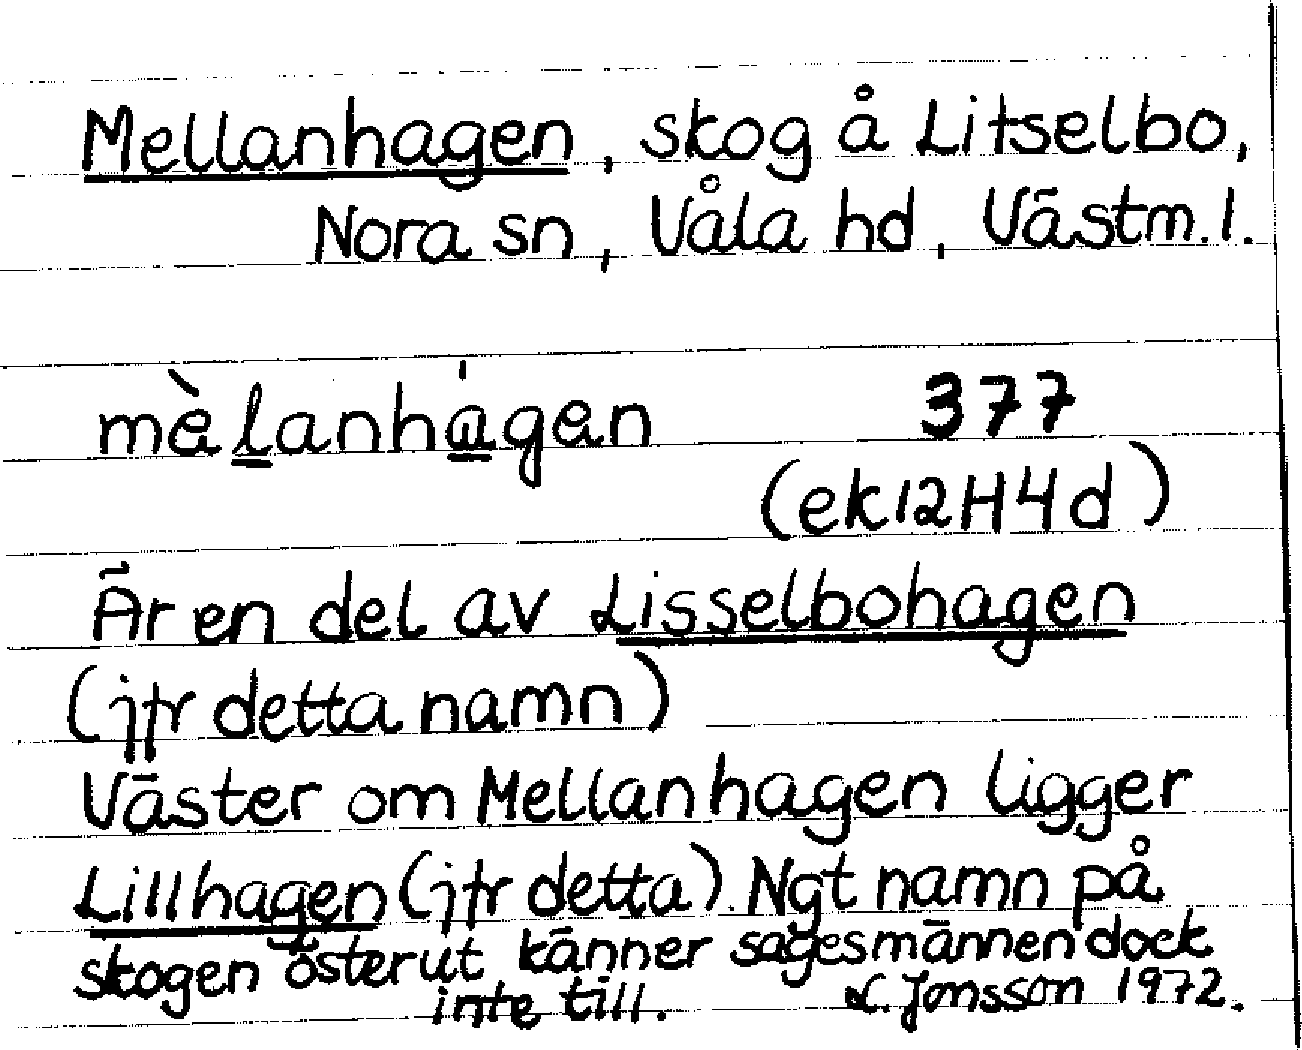 Mellanhagen, skog å Litselbo,
Nora sn, Våla hd, Västm. l.
mèlanhágen 377
(ek12H4d)
Är en del av Lisselbohagen
(jfr detta namn)
Väster om Mellanhagen ligger
Lillhagen (jfr detta). Ngt namn på
skogen österut känner sagesmännen dock
inte till. L. Jonsson 1972.